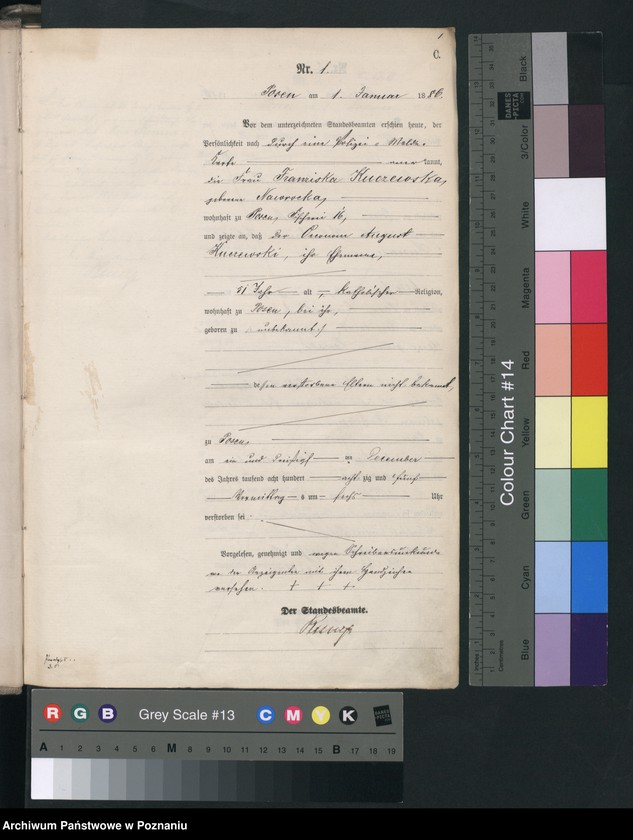 1
C.
Nr. 1.
Posen am 1. Januar 1886.
Vor dem unterzeichneten Standesbeamten erschien heute, der
Persönlichkeit nach durch eine Polizei-Melde-
karte kannt,
die Frau Franziska Kuczewska,
geborene Nawrocka,
wohnhaft zu Posen, Fischerei 16,
und zeigte an, daß der Oeconom August
Kuczewski, ihr Ehemann,
51 Jahr alt, katholischer Religion,
wohnhaft zu Posen, bei ihr,
geboren zu unbekannt,
dessen verstorbene Eltern nicht bekannt,
zu Posen,
am ein und dreißigsten December
des Jahres tausend acht hundert achtzig und fünf
Vormittag s um sechs Uhr
verstorben sei.
Vorgelesen, genehmigt und wegen Schreibensunkunde
von der Anzeigenden mit ihrem Handzeichen
versehen. + + +
Der Standesbeamte.
Colour Chart #14
Black
3/Color
White
Magenta
Red
Yellow
Green
Cyan
Blue
DANES
PICTA
.COM
Inches
Centimetres
R G B Grey Scale #13 C M Y K
A 1 2 3 4 5 6 M 8 9 10 11 12 13 14 15 B 17 18 19
Archiwum Państwowe w Poznaniu